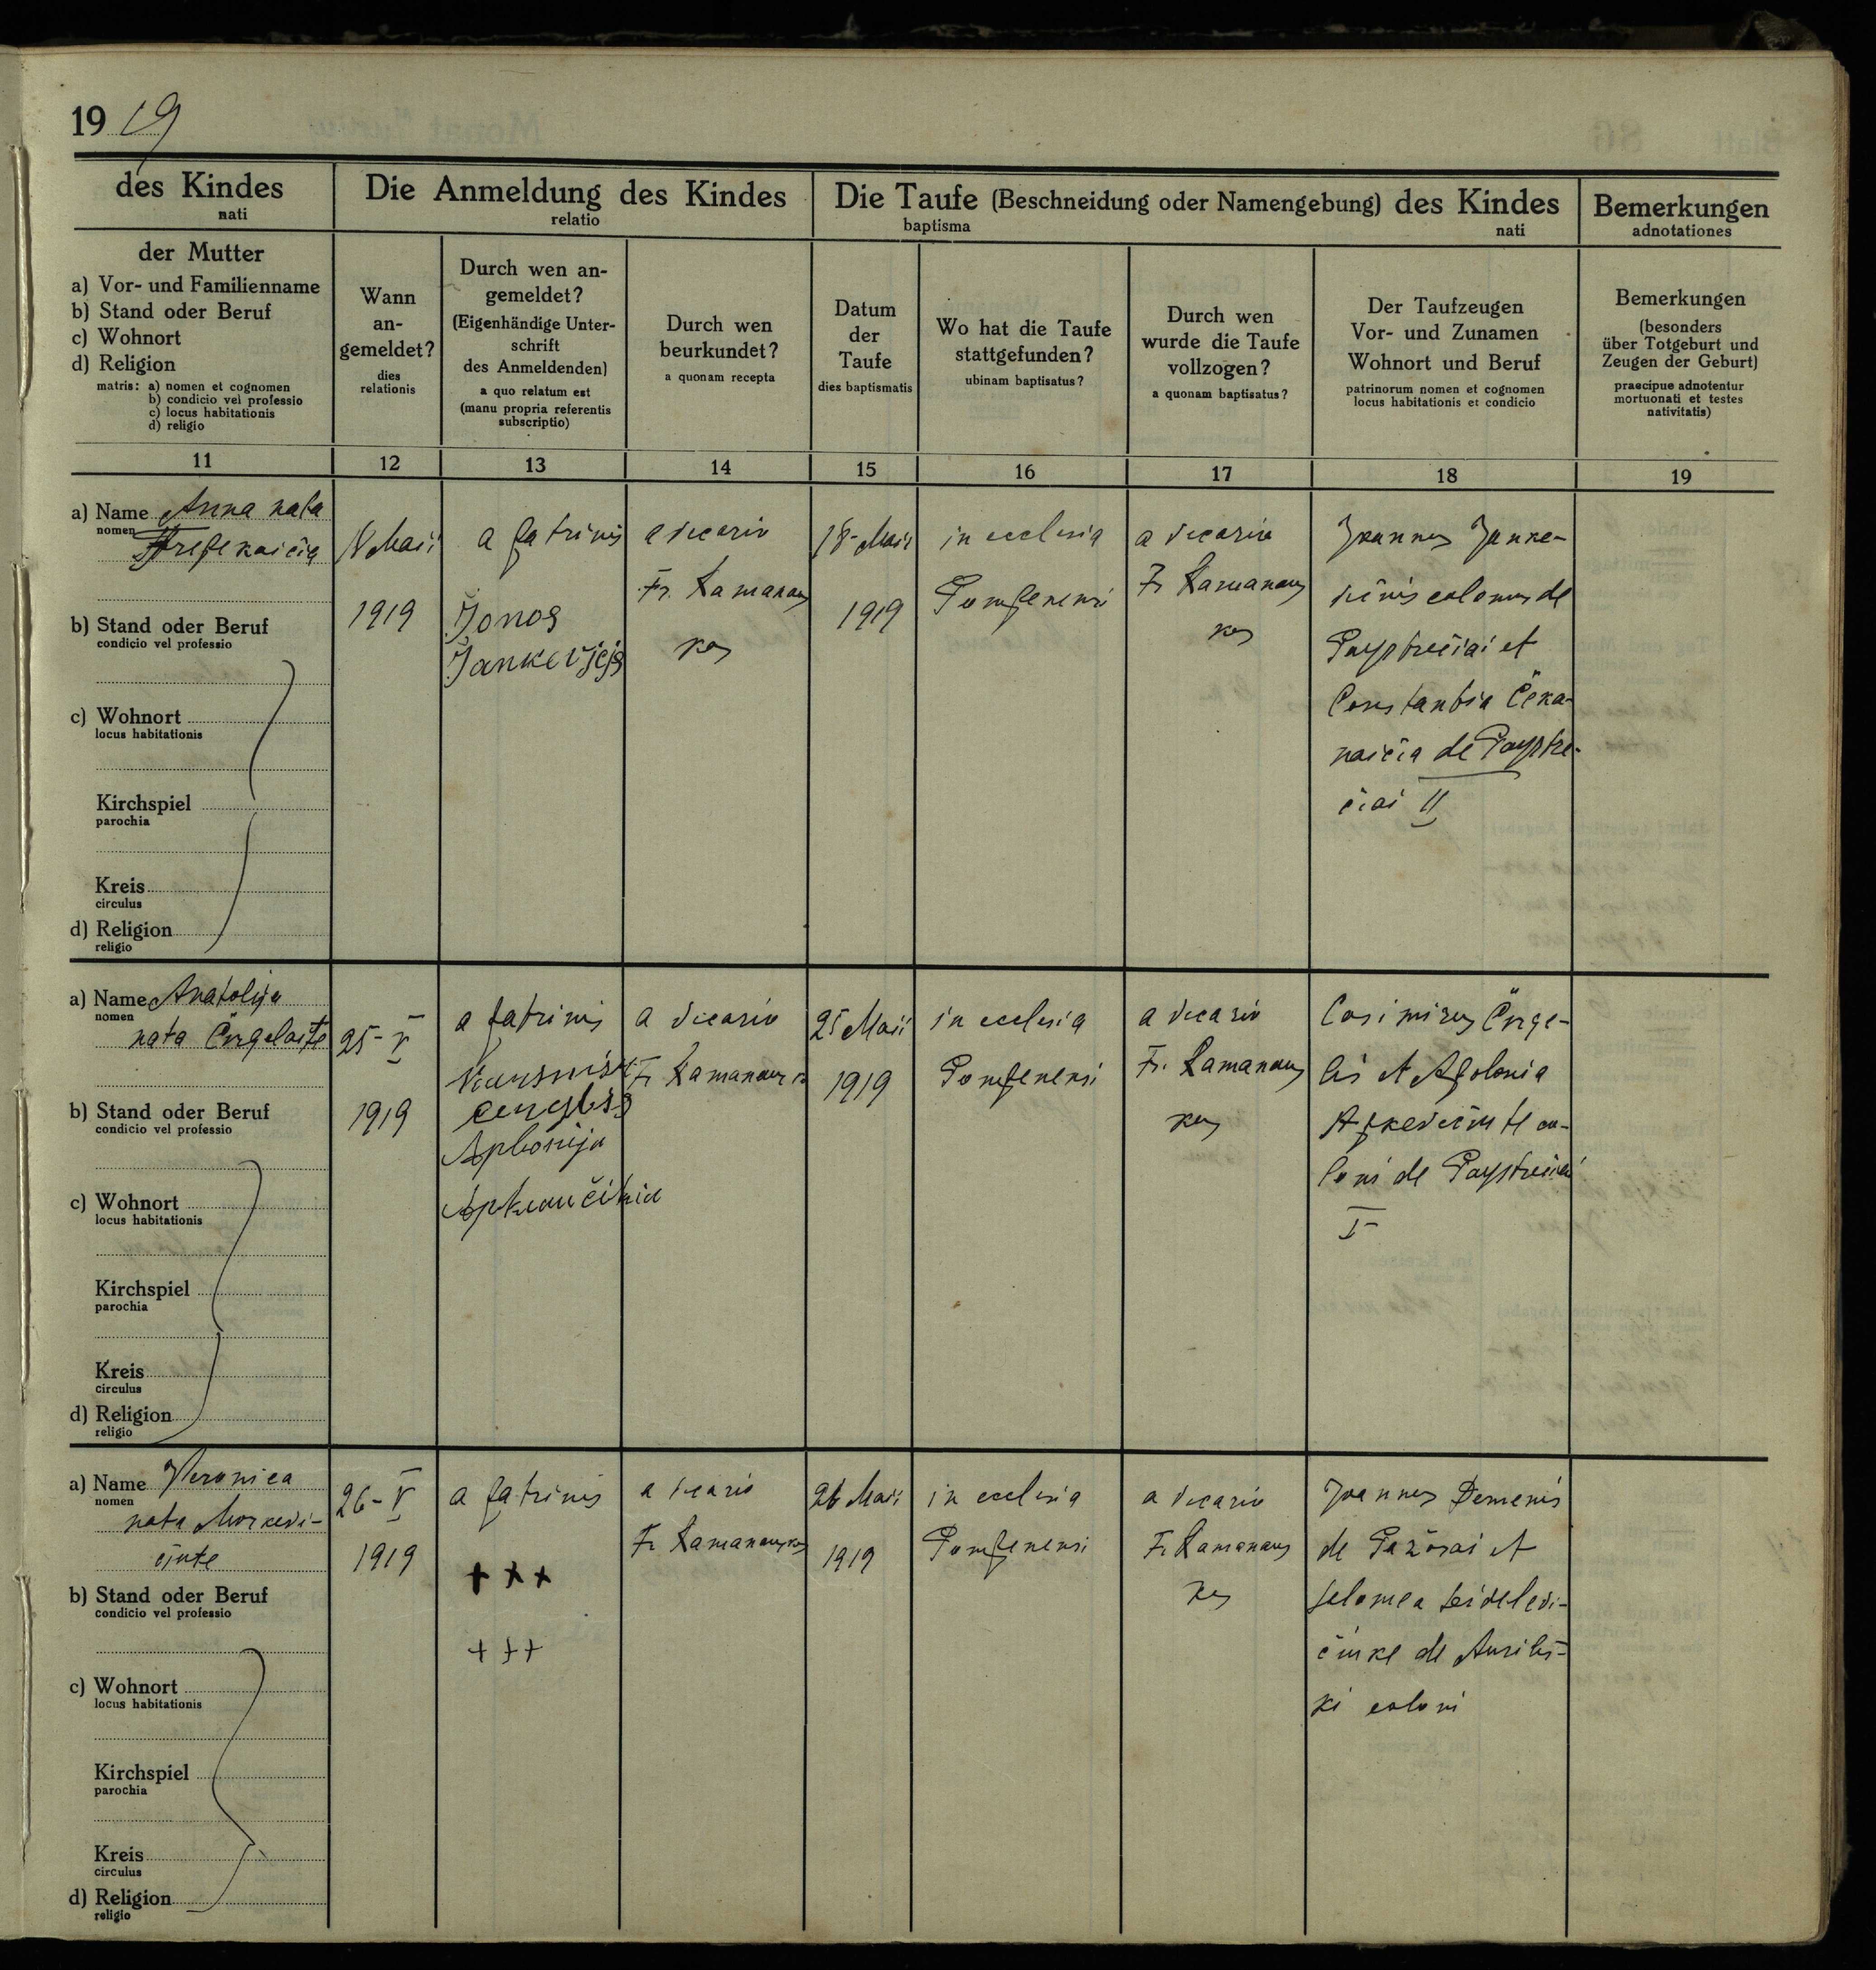 19 19
des Kindes
nati
Die Anmeldung des Kindes
relatio
Die Taufe (Beschneidung oder Namengebung) des Kindes
baptisma nati
Bemerkungen
adnotationes
der Mutter
a) Vor- und Familienname
b) Stand oder Beruf
c) Wohnort
d) Religion
matris: a) nomen et cognomen
b) condicio vel professio
c) locus habitationis
d) religio
Wann
an-
gemeldet?
dies
relationis
Durch wen an-
gemeldet?
(Eigenhändige Unter-
schrift
des Anmeldenden)
a quo relatum est
(manu propria referentis
subscriptio)
Durch wen
beurkundet?
a quonam recepta
Datum
der
Taufe
dies baptismatis
Wo hat die Taufe
stattgefunden?
ubinam baptisatus?
Durch wen
wurde die Taufe
vollzogen?
a quonam baptisatus?
Der Taufzeugen
Vor- und Zunamen
Wohnort und Beruf
patrinorum nomen et cognomen
locus habitationis et condicio
Bemerkungen
(besonders
über Totgeburt und
Zeugen der Geburt)
praecipue adnotentur
mortuonati et testes
nativitatis)
11 12 13 14 15 16 17 18 19
a) Name Anna nata
nomen
b) Stand oder Beruf
condicio vel professio
c) Wohnort
locus habitationis
Kirchspiel
parochia
Kreis
circulus
d) Religion
religio
18 Maii
1919
a patrinis
Jonos
a vicario
Fr. Ramanaus
kas
18 Maii
1919
in ecclesia
Pompenensi
a vicario
Fr. Ramanaus
kas
Joannes Janke-
colonus de
et
Constantia Čeka-
naičia de Paystre-
čiai II
a) Name Anatolija
nomen
nata
b) Stand oder Beruf
condicio vel professio
c) Wohnort
locus habitationis
Kirchspiel
parochia
Kreis
circulus
d) Religion
religio
25-V
1919
a patrinis
a vicario
Fr. Ramanaus
25 Maii
1919
in ecclesia
Pompenensi
a vicario
Fr. Ramanaus
kas
Casimirus
lis et Apolonia
co-
loni de
I
a) Name Veronica
nomen
nata Morkevi-
čiute
b) Stand oder Beruf
condicio vel professio
c) Wohnort
locus habitationis
Kirchspiel
parochia
Kreis
circulus
d) Religion
religio
26-V
1919
a patrinis
+ + +
+ + +
a vicario
Fr. Ramanauskas
26 Maii
1919
in ecclesia
Pompenensi
a vicario
Fr. Ramanaus
kas
Joannes Demenis
de et
de
ki coloni